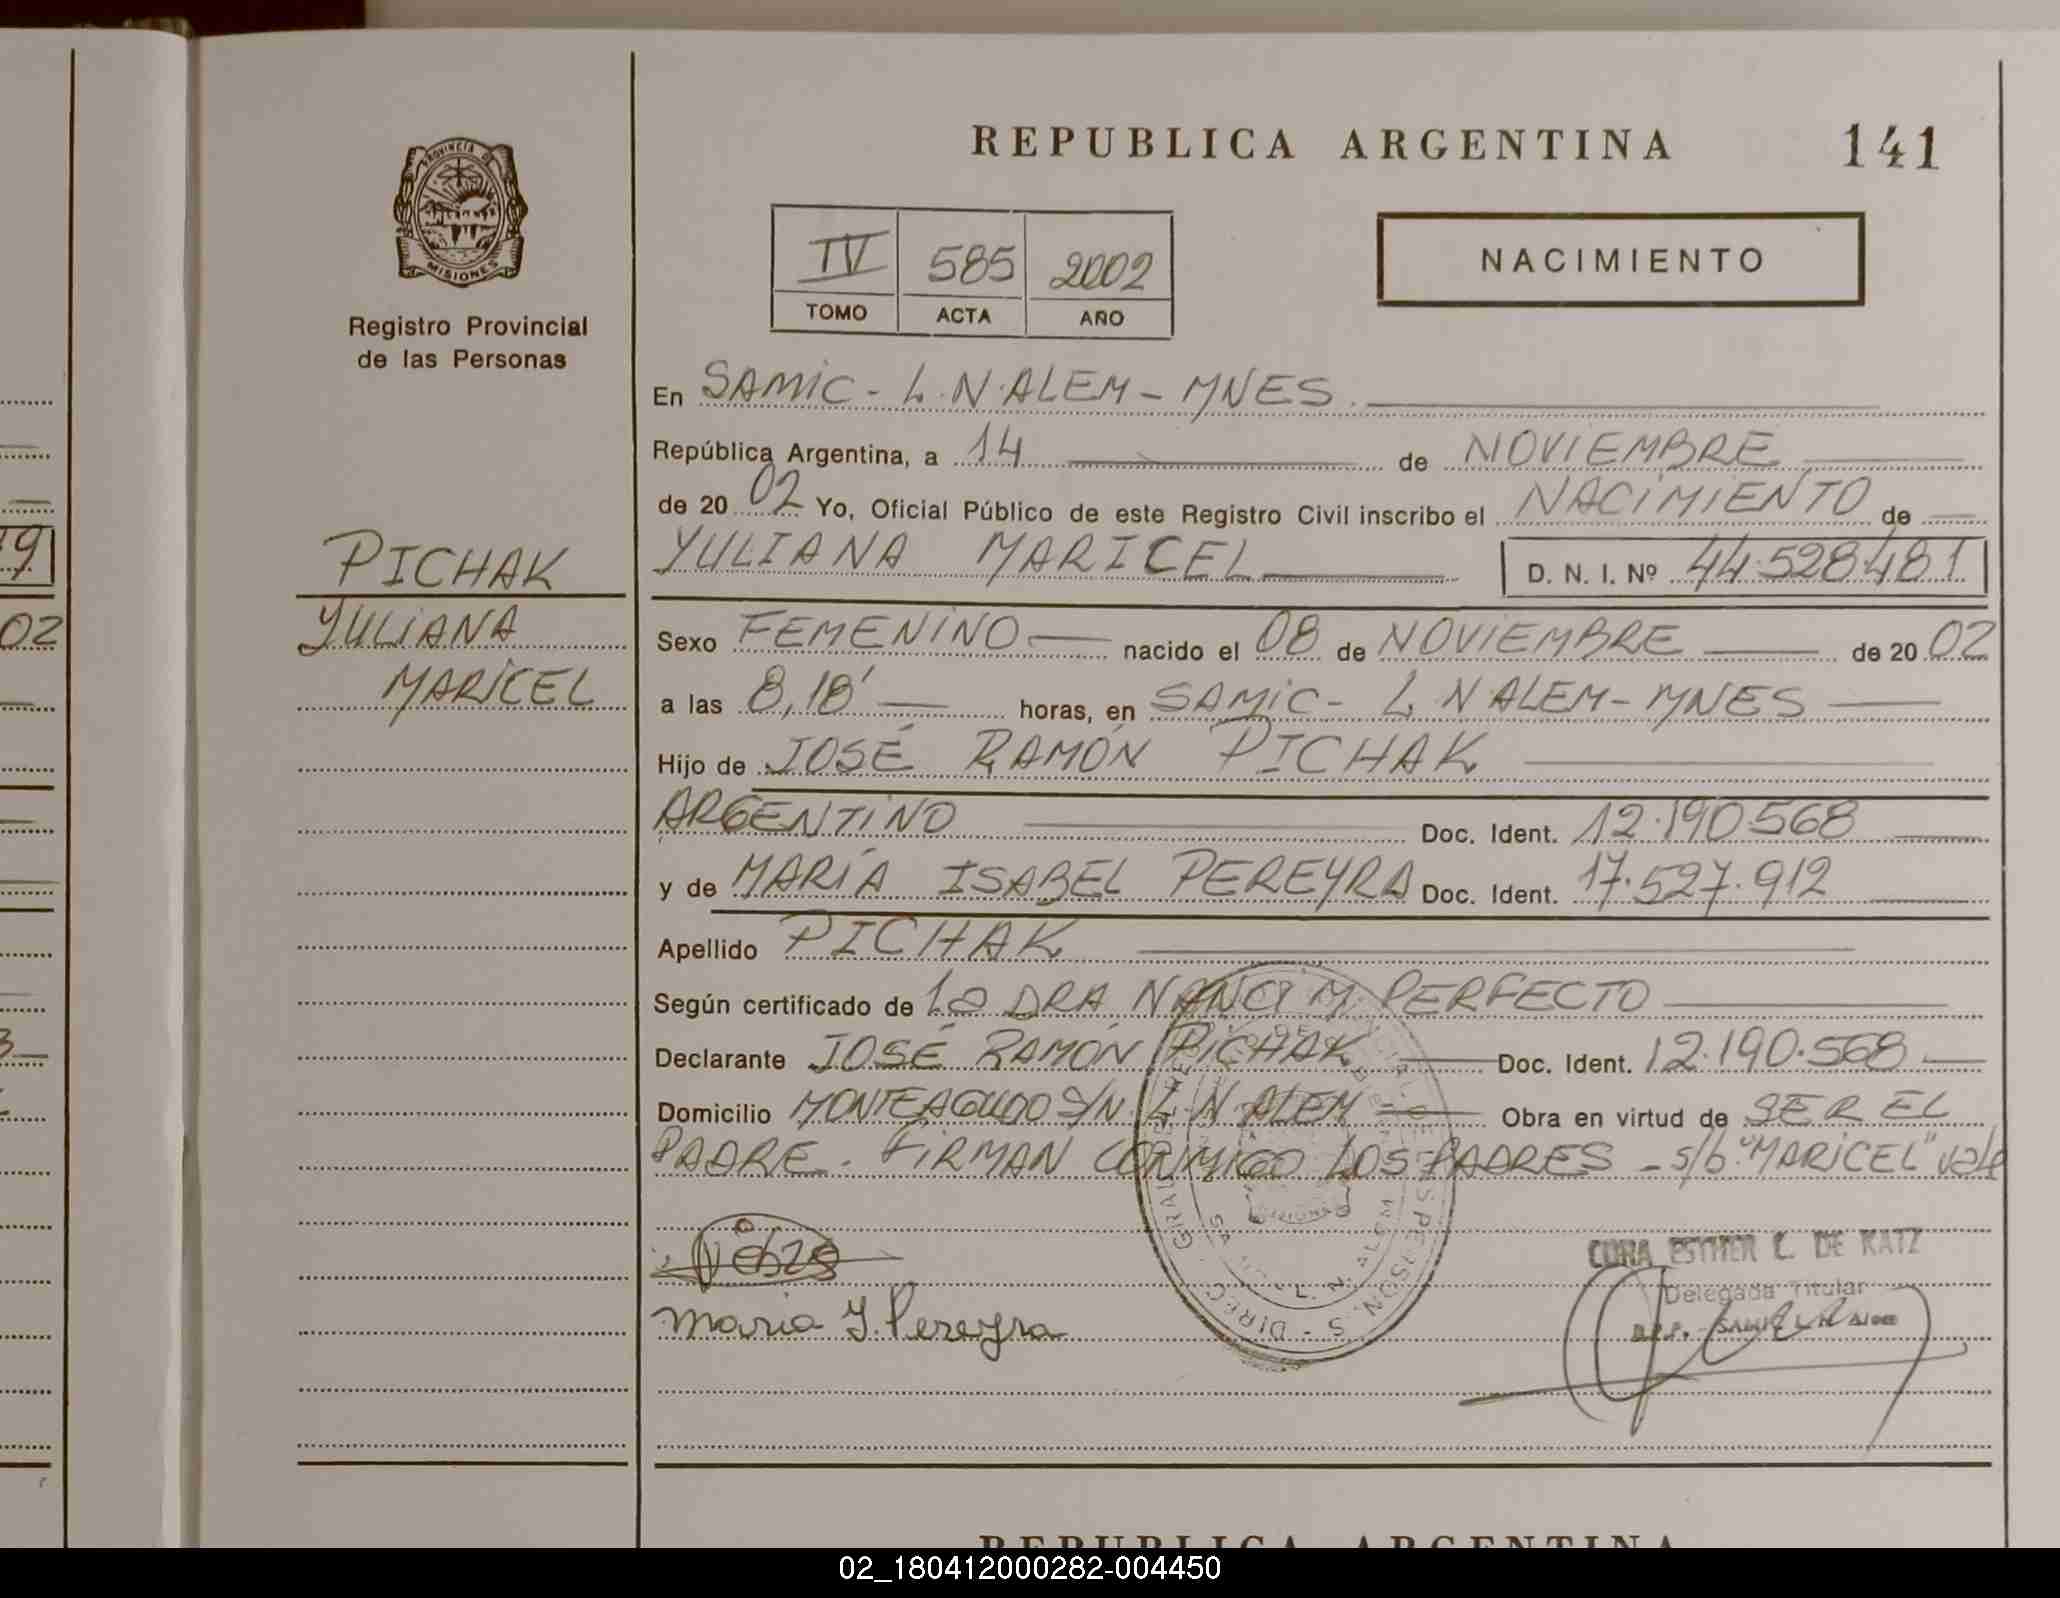 REPUBLICA ARGENTINA
141
PROVINCIA DE
MISIONES
Registro Provincial
de las Personas
IV 585 2002
TOMO ACTA AÑO
NACIMIENTO
En SAMIC - L.N. ALEM - MNES.
República Argentina, a 14 de NOVIEMBRE
de 2002 Yo, Oficial Público de este Registro Civil inscribo el NACIMIENTO de
YULIANA MARICEL D. N. I. Nº 44.528.481
PICHAK
YULIANA
MARICEL
Sexo FEMENINO nacido el 08 de NOVIEMBRE de 2002
a las 8,18' horas, en SAMIC - L N ALEM - MNES
Hijo de JOSÉ RAMÓN PICHAK
ARGENTINO Doc. Ident. 12.190.568
y de MARÍA ISABEL PEREYRA Doc. Ident. 17.527.912
Apellido PICHAK
Según certificado de la DRA NANCI M. PERFECTO
Declarante JOSÉ RAMÓN PICHAK Doc. Ident. 12.190.568
Domicilio MONTEAGUDO S/N. L N ALEM Obra en virtud de SER EL
PADRE. FIRMAN CONMIGO LOS PADRES - s/b "MARICEL" vale
Maria I. Pereyra
CORA ESTHER L. DE KATZ
Delegada Titular
02
REPUBLICA ARGENTINA
02_180412000282-004450